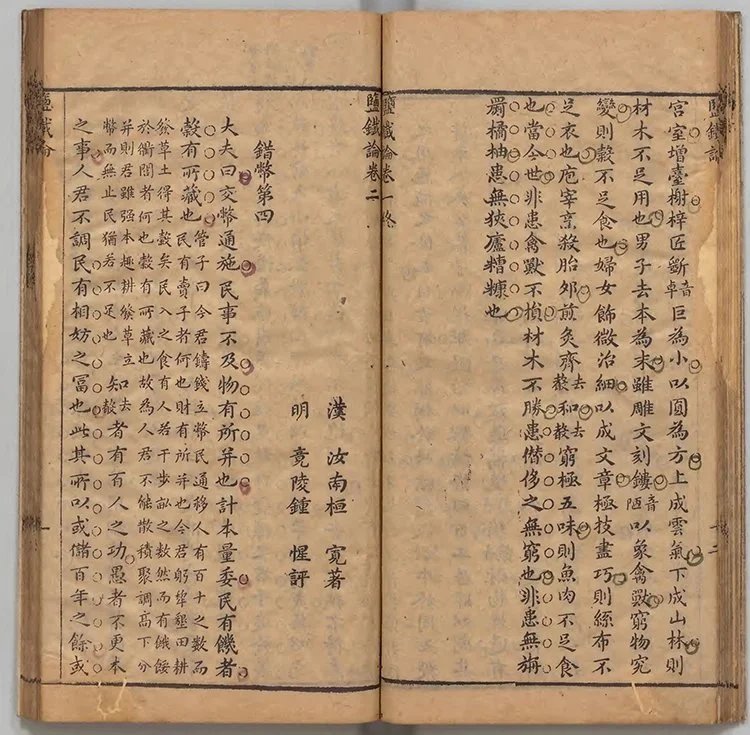 鹽鐵論
宮室增臺榭梓匠斲音卓巨為小以圓為方上成雲氣下成山林則
材木不足用也男子去本為末雖雕文刻鏤音陋以象禽獸窮物究
變則穀不足食也婦女飾微治細以成文章極技盡巧則絲布不
足衣也庖宰烹殺胎卵煎炙齊去殸和去殸窮極五味則魚肉不足食
也當今世非患禽獸不損材木不勝患僭侈之無窮也非患無旃
罽橘柚患無狹廬糟糠也
鹽鐵論卷一終
鹽鐵論卷二
漢 汝南桓 寬著
明 竟陵鍾 惺評
錯幣第四
大夫曰交幣通施民事不及物有所并也計本量委民有饑者
穀有所藏也
管子曰今君鑄錢立幣民通移人有百十之數而
民有賣子者何也財有所并也今君躬犂墾田耕
發草土得其穀矣民人之食有人若干步畝之數然而有饑餒
於衢閭者何也穀有所藏也故為人君不能散積聚調高下分
并則君雖强本趣耕發草立
幣而無止民猶若不足也
知去殸者有百人之功愚者不更本
之事人君不調民有相妨之富也此其所以或儲百年之餘或
鹽鐵論